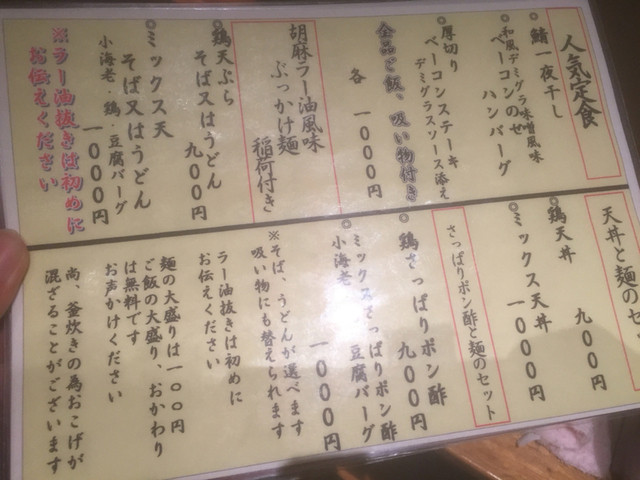 人気定食
◦鯖一夜干し
◦和風デミグラ味噌風味
ベーコンのせ
ハンバーグ
◦厚切り
ベーコンステーキ
デミグラスソース添え
全品ご飯、吸い物付き
各 一000円
胡麻ラー油風味
ぶっかけ麺
稲荷付き
◦鶏天ぷら
そば又はうどん
九00円
◦ミックス天
そば又はうどん
小海老・鶏・豆腐バーグ
一000円
※ラー油抜きは初めに
お伝えください
天丼と麺のセ
◦鶏天丼
九00円
◦ミックス天丼
一000円
さっぱりポン酢と麺のセット
◦鶏さっぱりポン酢
九00円
◦ミックスさっぱりポン酢
小海老 豆腐バーグ
一000円
※そば、うどんが選べます
吸い物にも替えられます
ラー油抜きは初めに
お伝えください
麺の大盛りは一00円
ご飯の大盛り、おかわり
は無料です
お声かけください
尚、釜炊きの為おこげが
混ざることがございます